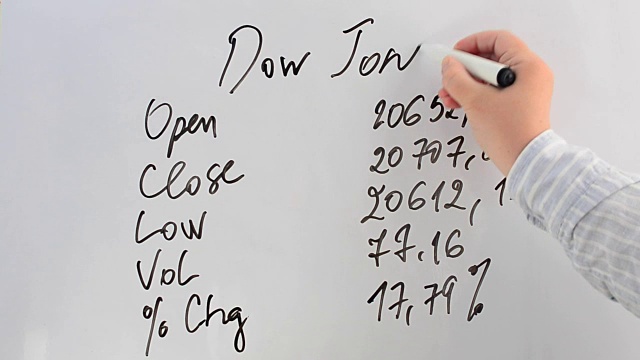 Dow Jon
Open 20652,
Close 20707,
Low 20612, 1
Vol 77.16
% Chg 17,79%